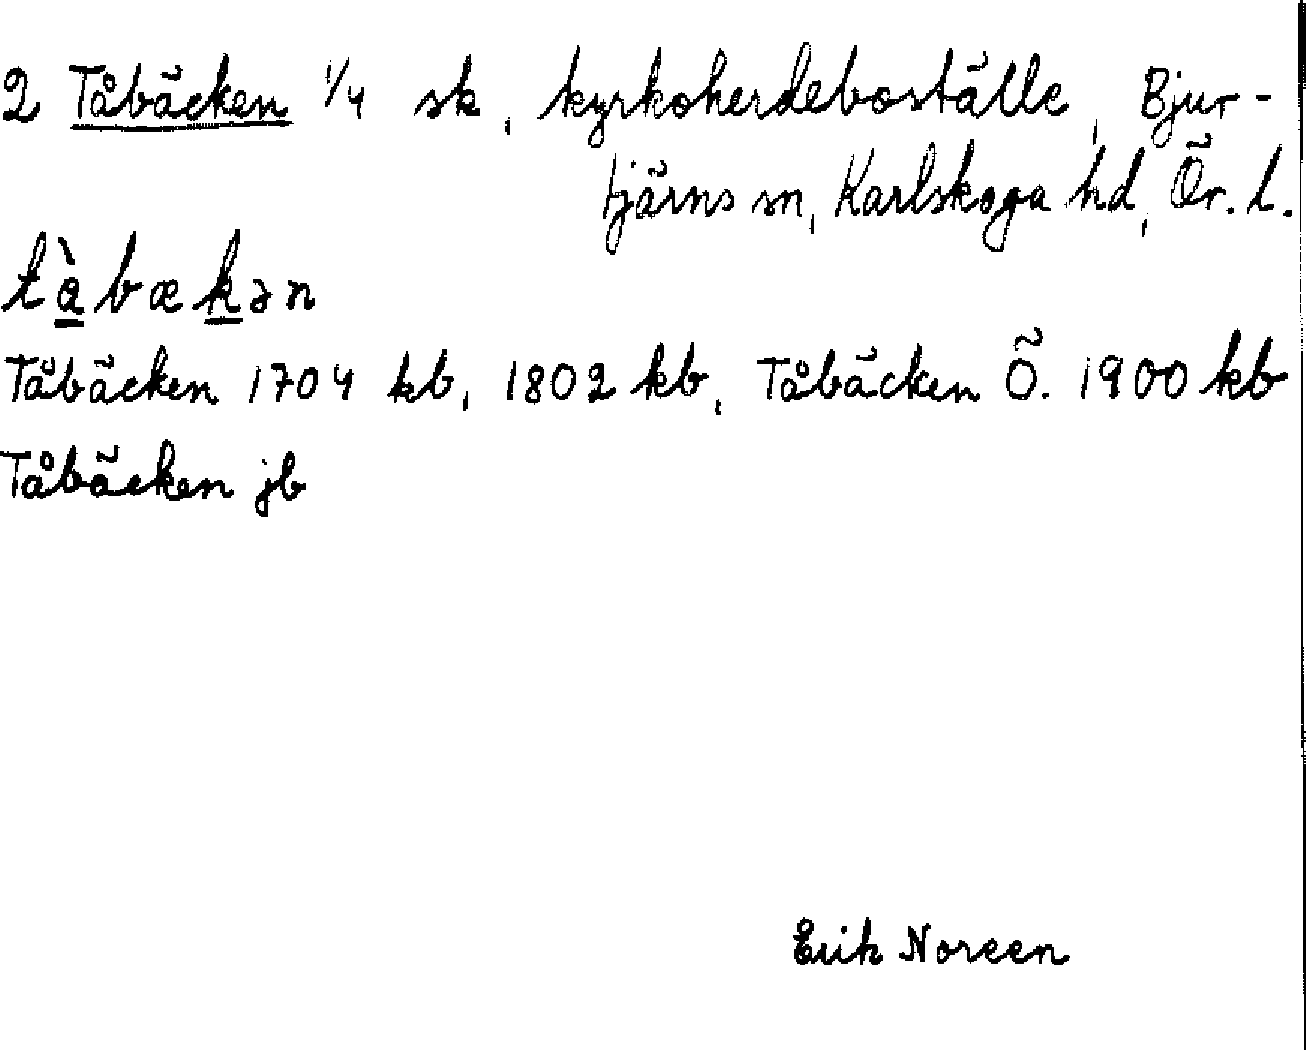 2 Tåbäcken 1/4 sk, kyrkoherdeboställe, Bjur-
tjärns sn, Karlskoga hd, Ör. l.
tàbækən
Tåbäcken 1704 kb, 1802 kb, Tåbäcken Ö. 1900 kb
Tåbäcken jb
Erik Noreen